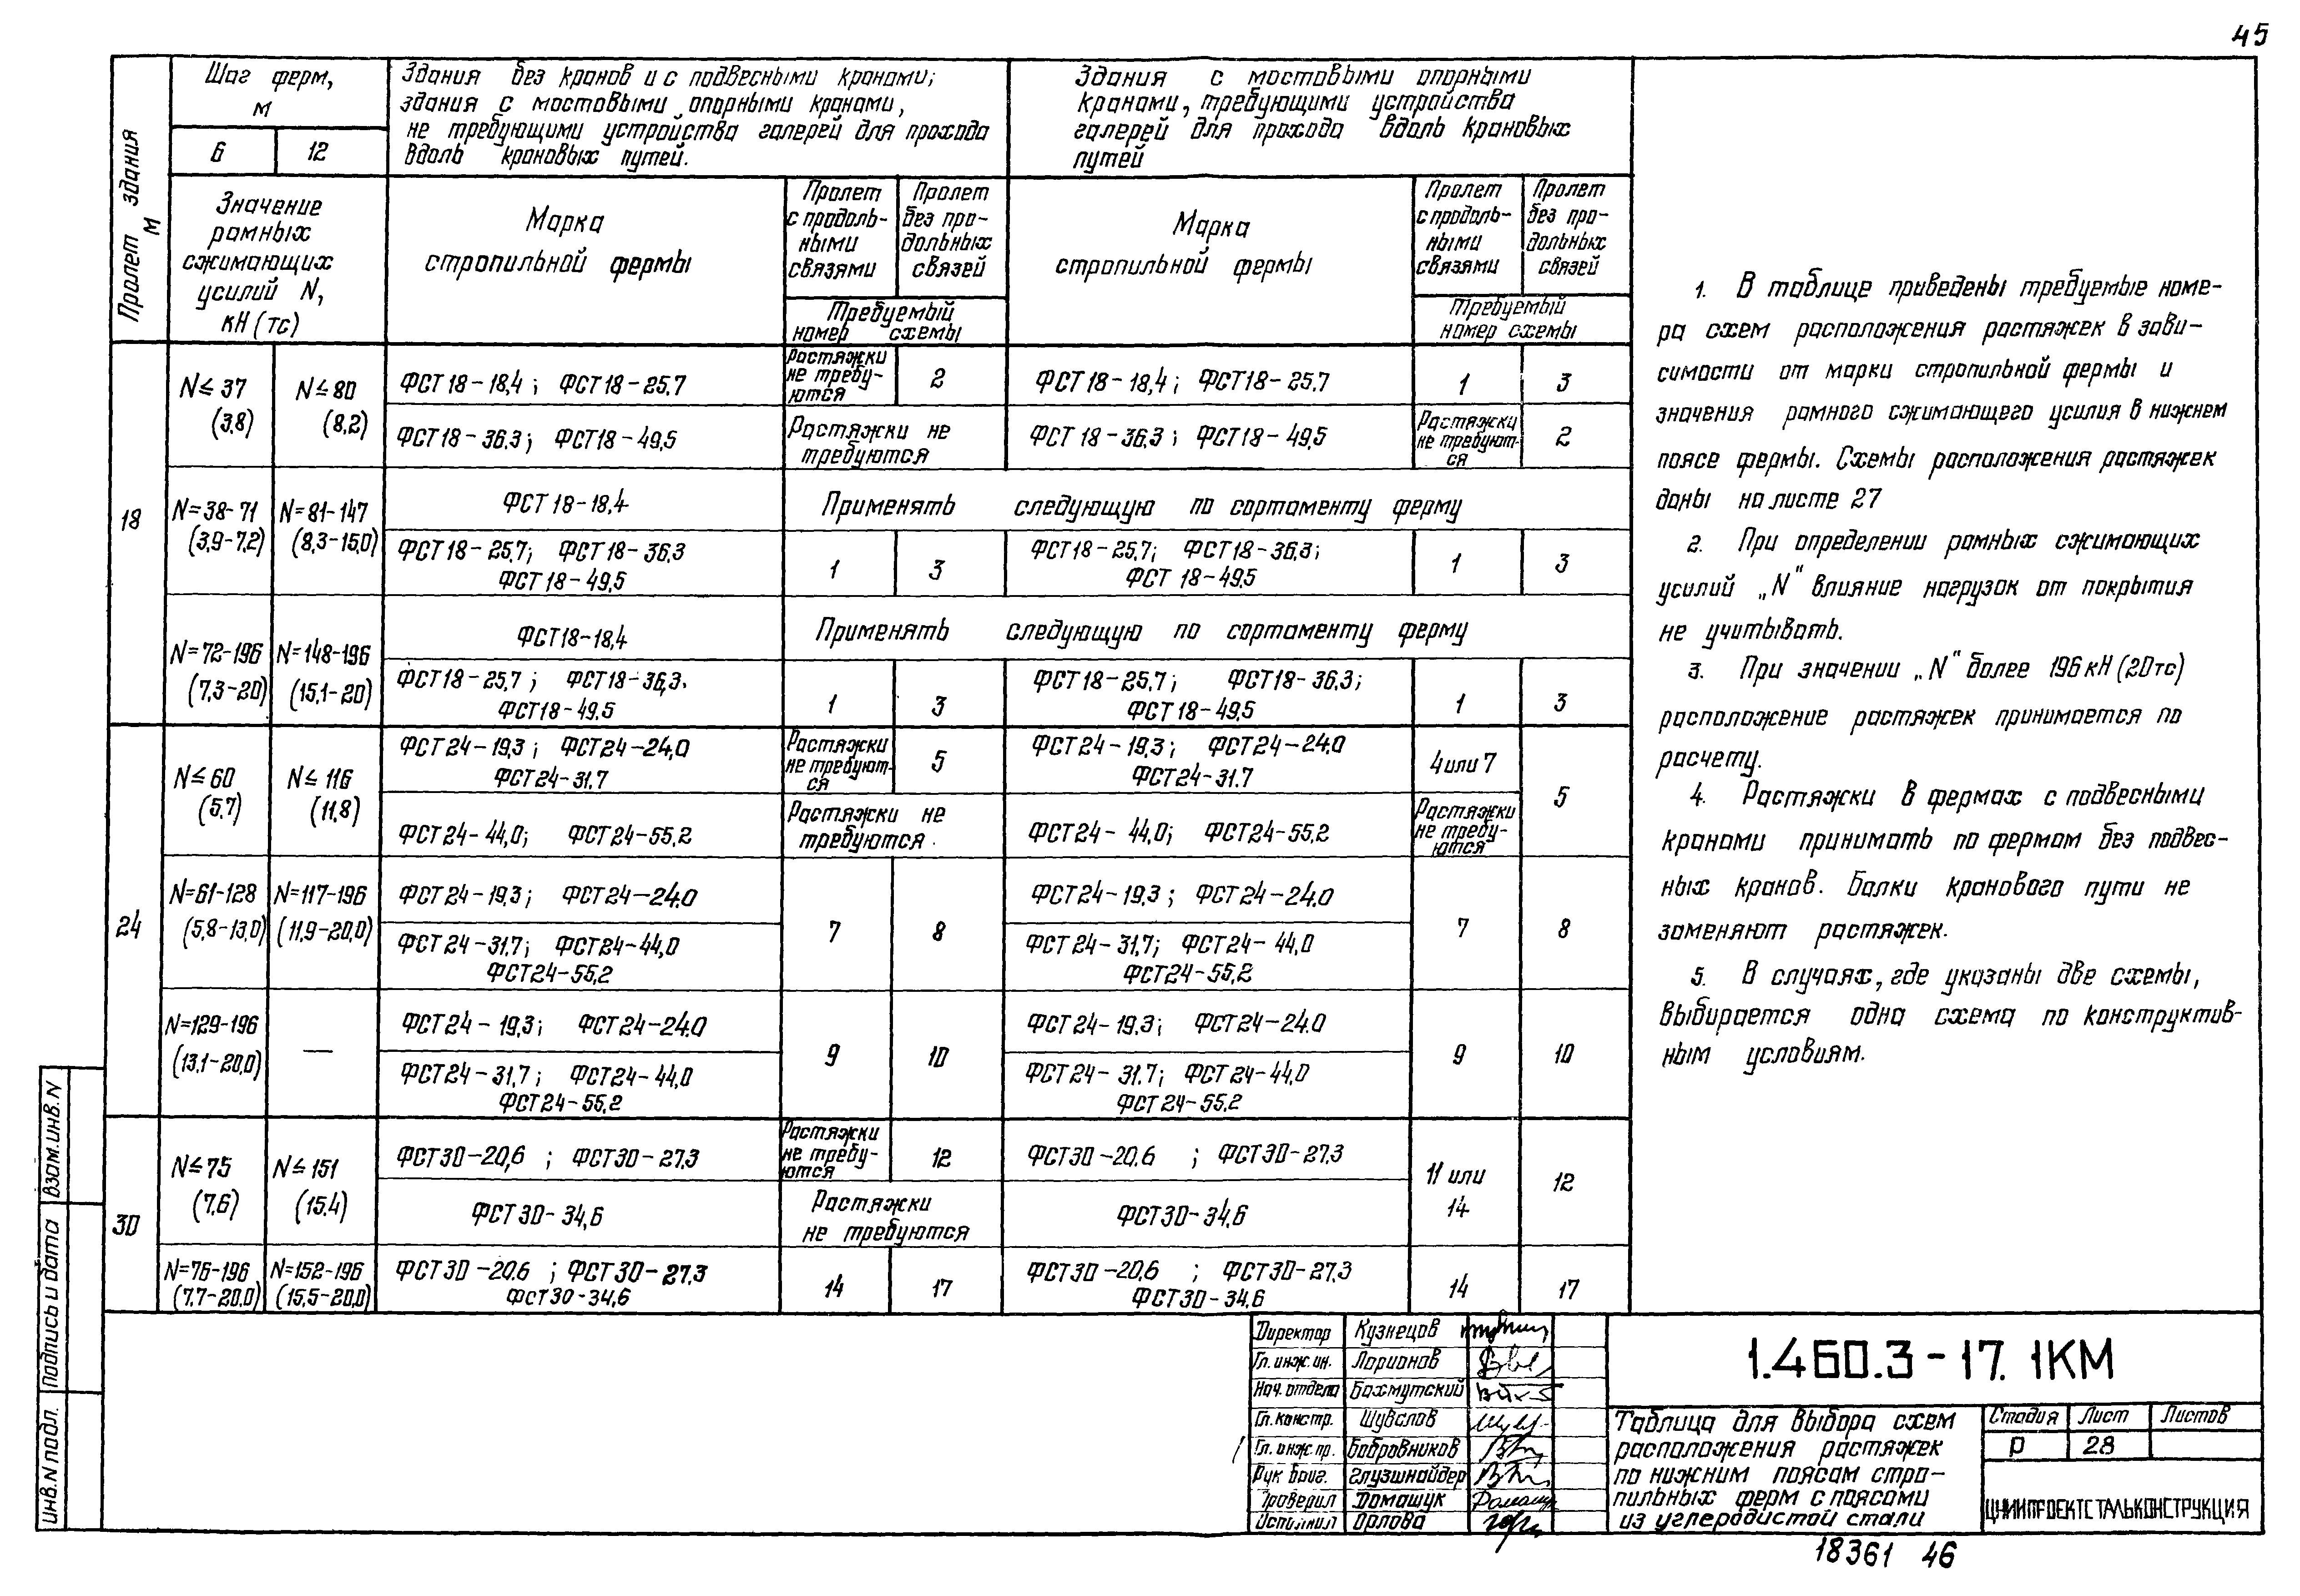 45
Пролет здания
м
Шаг ферм,
м
6
12
Значение
рамных
сжимающих
усилий N,
кН (тс)
Здания без кранов и с подвесными кранами;
здания с мостовыми опорными кранами,
не требующими устройства галерей для прохода
вдоль крановых путей.
Марка
стропильной фермы
Пролет
с продоль-
ными
связями
Пролет
без про-
дольных
связей
Требуемый
номер схемы
Здания с мостовыми опорными
кранами, требующими устройства
галерей для прохода вдоль крановых
путей
Марка
стропильной фермы
Пролет
с продоль-
ными
связями
Пролет
без про-
дольных
связей
Требуемый
номер схемы
18
N ≤ 37
(3,8)
N ≤ 80
(8,2)
ФСТ18-18,4; ФСТ18-25.7
Растяжки
не требу-
ются
2
ФСТ18-18,4; ФСТ18-25.7
1
3
ФСТ18-36.3; ФСТ18-49,5
Растяжки не
требуются
ФСТ 18-36.3; ФСТ18-49,5
Растяжки
не требуют-
ся
2
N=38-71
(3,9-7,2)
N=81-147
(8,3-15,0)
ФСТ 18-18,4
Применять следующую по сортаменту ферму
ФСТ18-25,7; ФСТ18-36,3
ФСТ 18-49,5
1
3
ФСТ18-25,7; ФСТ18-36,3;
ФСТ 18-49,5
1
3
N=72-196
(7,3-20)
N=148-196
(15,1-20)
ФСТ18-18,4
Применять следующую по сортаменту ферму
ФСТ18-25,7; ФСТ18-36,3.
ФСТ18-49.5
1
3
ФСТ18-25.7; ФСТ18-36,3;
ФСТ 18-49,5
1
3
24
N ≤ 60
(5,7)
N ≤ 116
(11,8)
ФСТ24-19,3; ФСТ24-24,0
ФСТ24-31.7
Растяжки
не требуют-
ся
5
ФСТ24-19,3; ФСТ24-24.0
ФСТ24-31.7
4 или 7
5
ФСТ24-44,0; ФСТ24-55,2
Растяжки не
требуются.
ФСТ24-44,0; ФСТ24-55,2
Растяжки
не требу-
ются
N=61-128
(5,8-13,0)
N=117-196
(11,9-20,0)
ФСТ24-19,3; ФСТ24-24.0
7
8
ФСТ24-19,3; ФСТ24-24.0
7
8
ФСТ24-31,7; ФСТ24-44,0
ФСТ24-55,2
ФСТ24-31,7; ФСТ24-44,0
ФСТ24-55,2
N=129-196
(13,1-20,0)
—
ФСТ24-19,3; ФСТ24-24.0
9
10
ФСТ24-19,3; ФСТ24-24.0
9
10
ФСТ24-31,7; ФСТ24-44,0
ФСТ24-55,2
ФСТ24-31.7; ФСТ24-44,0
ФСТ24-55,2
30
N ≤ 75
(7,6)
N ≤ 151
(15.4)
ФСТ30-20,6; ФСТ30-27,3
Растяжки
не требу-
ются
12
ФСТ30-20.6; ФСТ30-27,3
11 или
14
12
ФСТ30-34,6
Растяжки
не требуются
ФСТ30-34,6
N=76-196
(7,7-20.0)
N=152-196
(15,5-20,0)
ФСТ30-20.6; ФСТ30-27,3
ФСТ30-34,6
14
17
ФСТ30-20,6; ФСТ30-27,3
ФСТ30-34,6
14
17
1. В таблице приведены требуемые номе-
ра схем расположения растяжек в зави-
симости от марки стропильной фермы и
значения рамного сжимающего усилия в нижнем
поясе фермы. Схемы расположения растяжек
даны на листе 27
2. При определении рамных сжимающих
усилий „N" влияние нагрузок от покрытия
не учитывать.
3. При значении „N" более 196 кН (20тс)
расположение растяжек принимается по
расчету.
4. Растяжки в фермах с подвесными
кранами принимать по фермам без подвес-
ных кранов. Балки кранового пути не
заменяют растяжек.
5. В случаях, где указаны две схемы,
выбирается одна схема по конструктив-
ным условиям.
Взам.инв.N
Подпись и дата
Инв.N подл.
Директор Кузнецов
Гл. инж. ин. Ларионов
Нач. отдела Бахмутский
Гл. констр. Шувалов
Гл. инж. пр. Бобровников
Рук бриг. Глузшнайдер
Проверил Домащук
Исполнил Орлова
1.460.3-17. 1КМ
Таблица для выбора схем
расположения растяжек
по нижним поясам стро-
пильных ферм с поясами
из углеродистой стали
Стадия Лист Листов
Р 28
ЦНИИПРОЕКТСТАЛЬКОНСТРУКЦИЯ
18361 46